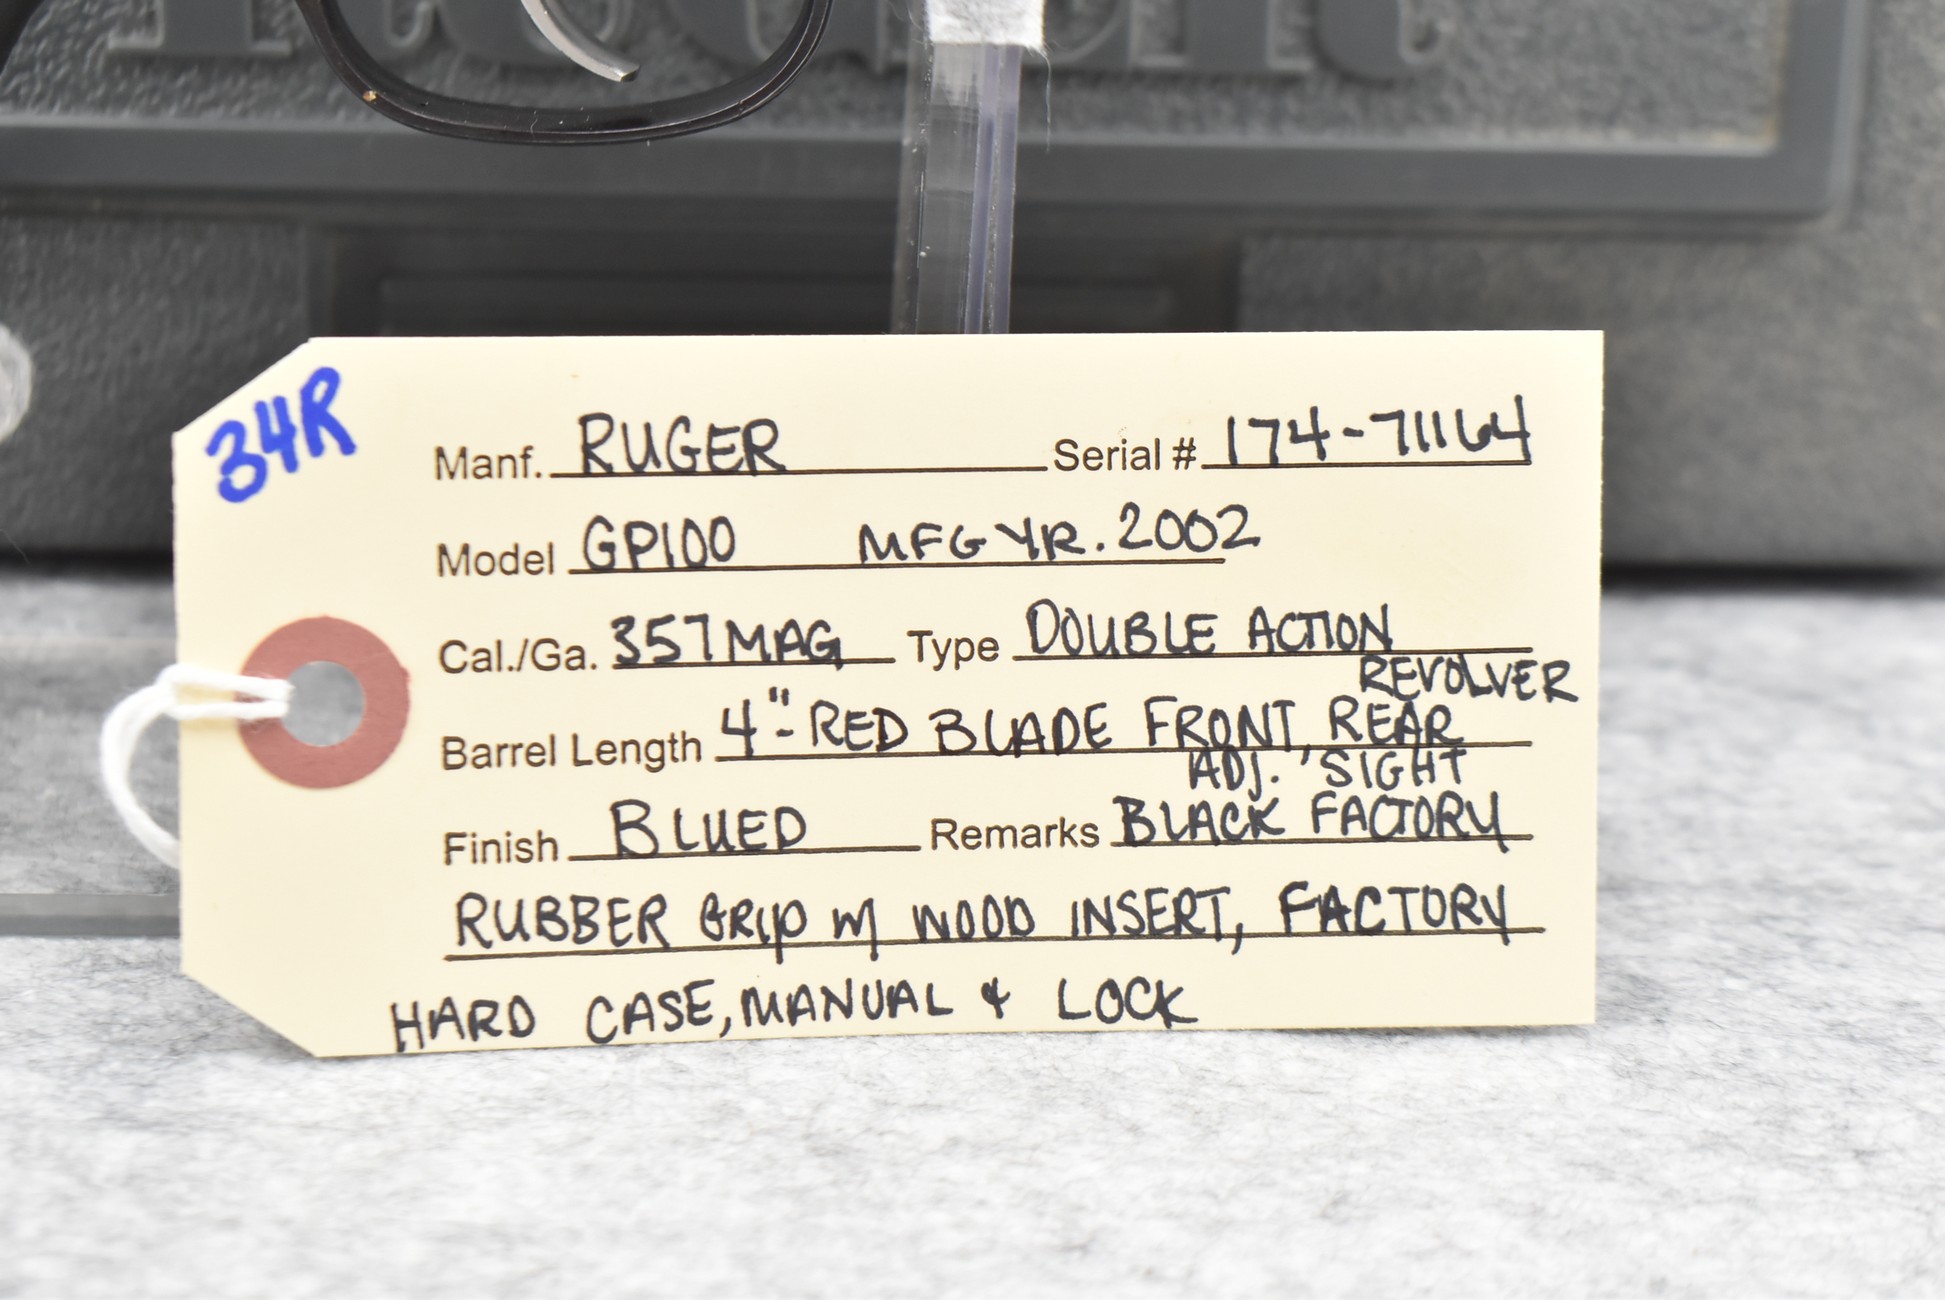 Ruger
34R
Manf. RUGER Serial # 174-71164
Model GP100 MFG YR. 2002
Cal./Ga. 357 MAG Type DOUBLE ACTION
REVOLVER
Barrel Length 4"- RED BLADE FRONT, REAR
ADJ. SIGHT
Finish BLUED Remarks BLACK FACTORY
RUBBER GRIP W/ WOOD INSERT, FACTORY
HARD CASE, MANUAL & LOCK